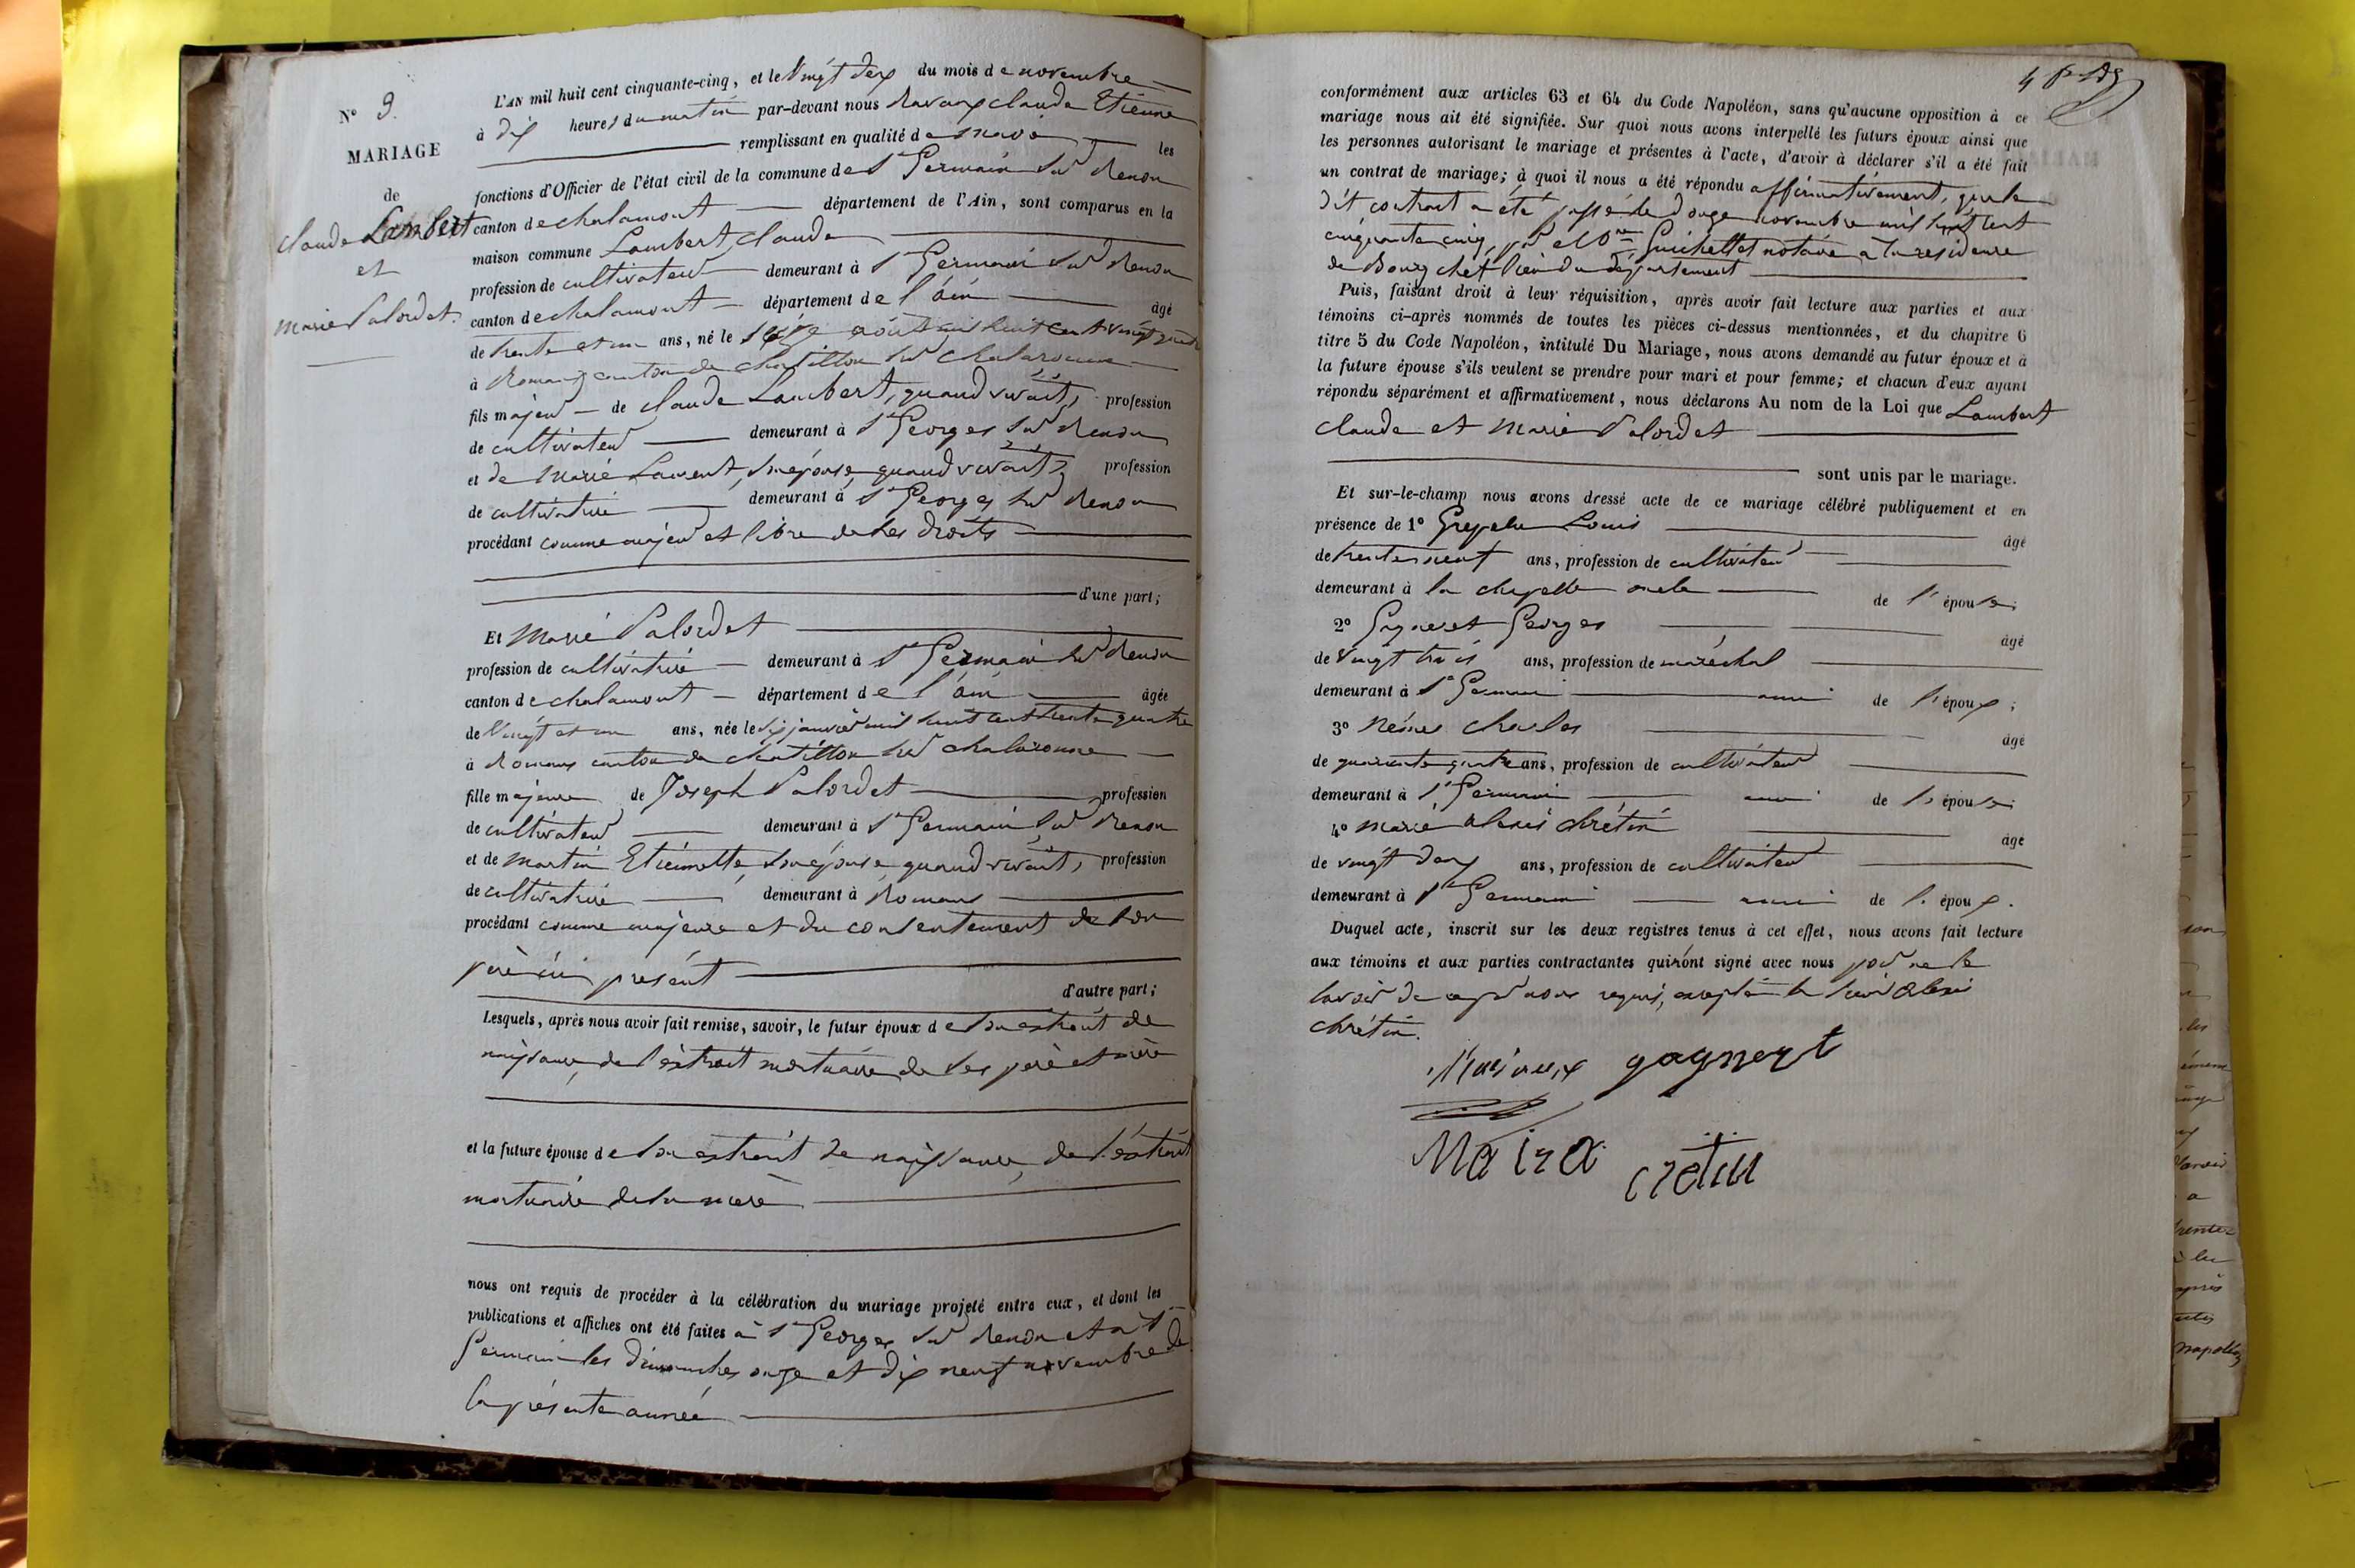 N° 9.
MARIAGE
de
claude Lambert
et
marie Palordet.
L'AN mil huit cent cinquante-cinq, et le vingt deux du mois de novembre
à dix heures du matin par-devant nous claude Etienne
remplissant en qualité de les
fonctions d'Officier de l'état civil de la commune de St Germain sur Renon
canton de chalamont département de l'Ain, sont comparus en la
maison commune Lambert, claude
profession de cultivateur demeurant à St Germain sur Renon
canton de chalamont département de l'ain âgé
de trente et un ans, né le seize août mil huit cent vingt quatre
à Romans canton de chatillon sur chalaronne
fils majeur de claude Lambert, quand vivait, profession
de cultivateur demeurant à St Georges sur Renon
et de Marie Laurent, son épouse, quand vivait, profession
de cultivatrice demeurant à St Georges sur Renon
procédant comme majeur et libre de ses droits
d'une part;
Et Marie Palordet
profession de cultivatrice demeurant à St Germain sur Renon
canton de chalamont département de l'ain âgée
de vingt et un ans, née le dix janvier mil huit cent trente quatre
à Romans canton de chatillon sur chalaronne
fille majeure de Joseph Palordet profession
de cultivateur demeurant à St Germain sur Renon
et de Martin Etiennette, son épouse, quand vivait, profession
de cultivatrice demeurant à Romans
procédant comme majeure et du consentement de son
père ici présent
d'autre part;
Lesquels, après nous avoir fait remise, savoir, le futur époux de son extrait de
naissance, de l'extrait mortuaire de ses père et mère
et la future épouse de son extrait de naissance, de l'extrait
mortuaire de sa mère
nous ont requis de procéder à la célébration du mariage projeté entre eux, et dont les
publications et affiches ont été faites à St Georges sur Renon et à St
Germain les dimanches onze et dix neuf novembre de
la présente année
conformément aux articles 63 et 64 du Code Napoléon, sans qu'aucune opposition à ce
mariage nous ait été signifiée. Sur quoi nous avons interpellé les futurs époux ainsi que
les personnes autorisant le mariage et présentes à l'acte, d'avoir à déclarer s'il a été fait
un contrat de mariage; à quoi il nous a été répondu affirmativement, que le
dit contrat a été passé le douze novembre mil huit cent
cinquante cinq, par Me Guichellet notaire à la résidence
de Bourg chef lieu du département
Puis, faisant droit à leur réquisition, après avoir fait lecture aux parties et aux
témoins ci-après nommés de toutes les pièces ci-dessus mentionnées, et du chapitre 6
titre 5 du Code Napoléon, intitulé Du Mariage, nous avons demandé au futur époux et à
la future épouse s'ils veulent se prendre pour mari et pour femme; et chacun d'eux ayant
répondu séparément et affirmativement, nous déclarons Au nom de la Loi que Lambert
claude et Marie Palordet
sont unis par le mariage.
Et sur-le-champ nous avons dressé acte de ce mariage célébré publiquement et en
présence de 1° Louis âgé
de trente neuf ans, profession de cultivateur
demeurant à la chapelle oncle de l'épouse;
2° Georges âgé
de vingt trois ans, profession de maréchal
demeurant à St Germain ami de l'époux;
3° charles âgé
de quarante quatre ans, profession de cultivateur
demeurant à St Germain ami de l'épouse;
4° marie alexis chrétin âgé
de vingt deux ans, profession de cultivateur
demeurant à St Germain ami de l'époux.
Duquel acte, inscrit sur les deux registres tenus à cet effet, nous avons fait lecture
aux témoins et aux parties contractantes qui n'ont signé avec nous pour ne le
savoir de ce par nous requis, excepté le alexis
chrétin.
gagneret
cretin